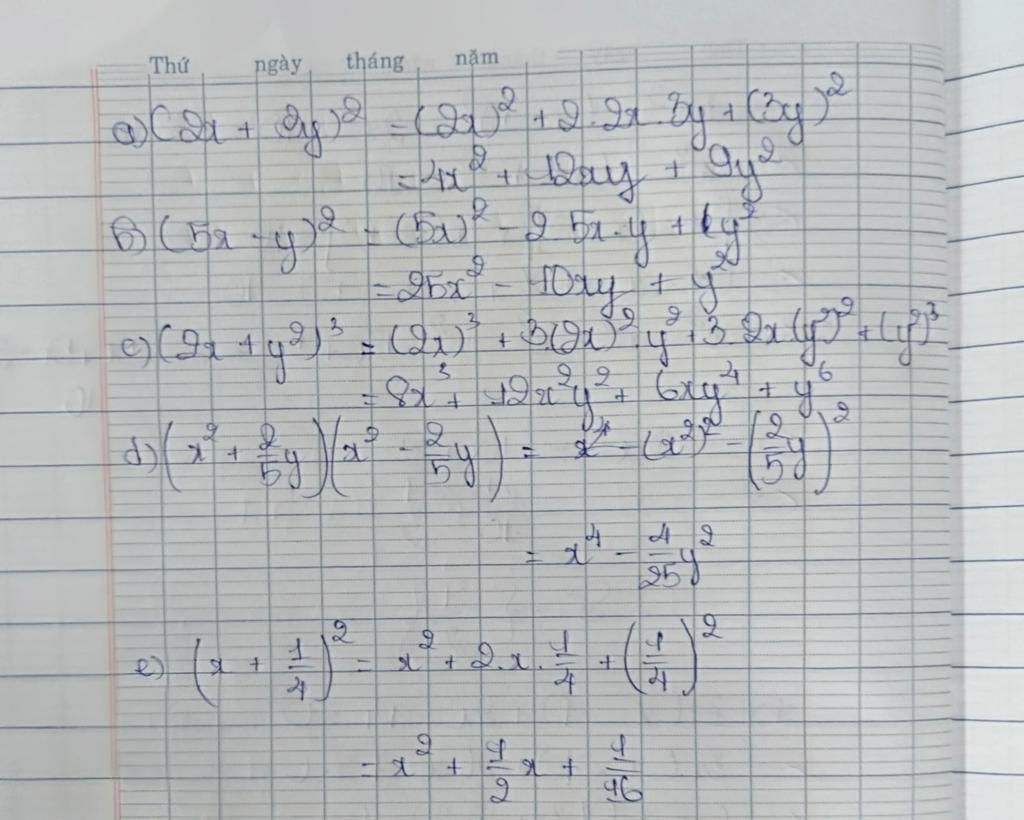 Thứ ngày tháng năm
a) (2x + 3y)² = (2x)² + 2.2x.3y + (3y)²
= 4x² + 12xy + 9y²
b) (5x - y)² = (5x)² - 2 5x.y + y²
= 25x² - 10xy + y²
c) (2x + y²)³ = (2x)³ + 3(2x)².y² + 3.2x.(y²)² + (y²)³
= 8x³ + 12x²y² + 6xy⁴ + y⁶
d) (x² + 2/5y)(x² - 2/5y) = x⁴ - (x²)² - (2/5y)²
= x⁴ - 4/25y²
e) (x + 1/4)² = x² + 2.x.1/4 + (1/4)²
= x² + 1/2x + 1/16